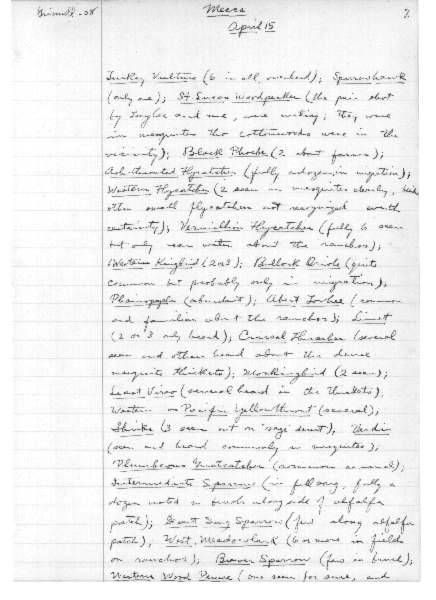 Grinnell - 08
Mecca
7
April 15
Turkey Vulture (6 in all, overhead); Sparrowhawk
(only one); St. Lucas Woodpecker (the pair shot
by and me, were mating; they were
in mesquites tho cottonwoods were in the
vicinity); Black Phoebe (2 about farms);
Ash-throated Flycatcher (fully a dozen, in migration);
Western Flycatcher (2 seen in mesquites closely,
other small flycatchers not recognized with
certainty); Vermillion Flycatcher (fully 6 seen
but only near water about the ranches);
Western Kingbird (2 or 3); Bullock Oriole (quite
common but probably only in migration);
Phainopepla (abundant); Abert Towhee (common
and familiar about the ranches); Linnet
(2 or 3 only heard); Crissal Thrasher (several
seen and others heard about the dense
mesquite thickets); Mockingbird (2 seen);
Least Vireo (several heard in the thickets),
Western or Pacific Yellowthroat (several),
Shrike (3 seen out on "sage desert"); Verdin
(seen and heard commonly in mesquites);
Plumbeous Gnatcatcher (common as usual);
Intermediate Sparrow (in full song, fully a
dozen noted in brush alongside of alfalfa
patch); Desert Song Sparrow (few along alfalfa
patch); West. Meadowlark (6 or more in fields
on ranches); Brewer Sparrow (few in brush);
Western Wood Pewee (one seen for sure, and